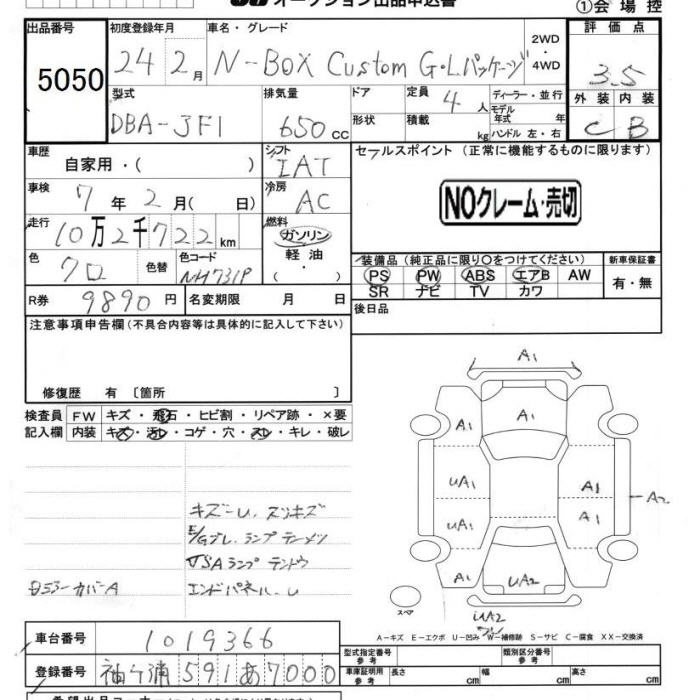 オークション出品申込書
①会場控
出品番号 初度登録年月 車名・グレード 2WD・4WD 評価点
5050 24 2月 N-BOX Custom G・Lパッケージ 3.5
型式 排気量 ドア 定員 4人 ディーラー・並行 外装 内装
DBA-JF1 650cc 形状 積載 kg モデル年式 年 ハンドル 左・右 C B
車歴 自家用・( ) シフト IAT セールスポイント (正常に機能するものに限ります)
車検 7年2月( 日) 冷房 AC NOクレーム・売切
走行 10万2千722km 燃料 ガソリン 軽油・( )
色 クロ 色替 色コード NH731P 装備品 (純正品に限り○をつけてください) 新車保証書
PS PW ABS エアB AW 有・無
SR ナビ TV カワ
R券 9890円 名変期限 月 日 後日品
注意事項申告欄 (不具合内容等は具体的に記入して下さい)
修復歴 有 〔箇所 〕
検査員 FW キズ・飛石・ヒビ割・リペア跡・×要
記入欄 内装 キズ・汚レ・コゲ・穴・スレ・キレ・破レ
キズ-U、スリキズ
E/Gブレ、ランプテーメツ
VSAランプテントウ
日ミラーカバーA エンドパネル-U
A1
A1 A1
UA1 A1 A2
UA1 A1
A1 UA2
スペア
UA2
A-キズ E-エクボ U-凹み W-補修跡 S-サビ C-腐食 XX-交換済
車台番号 1019366
型式指定番号 参考 類別区分番号 参考
登録番号 袖ヶ浦591あ7000
車庫証明用 参考 長さ cm 幅 cm 高さ cm